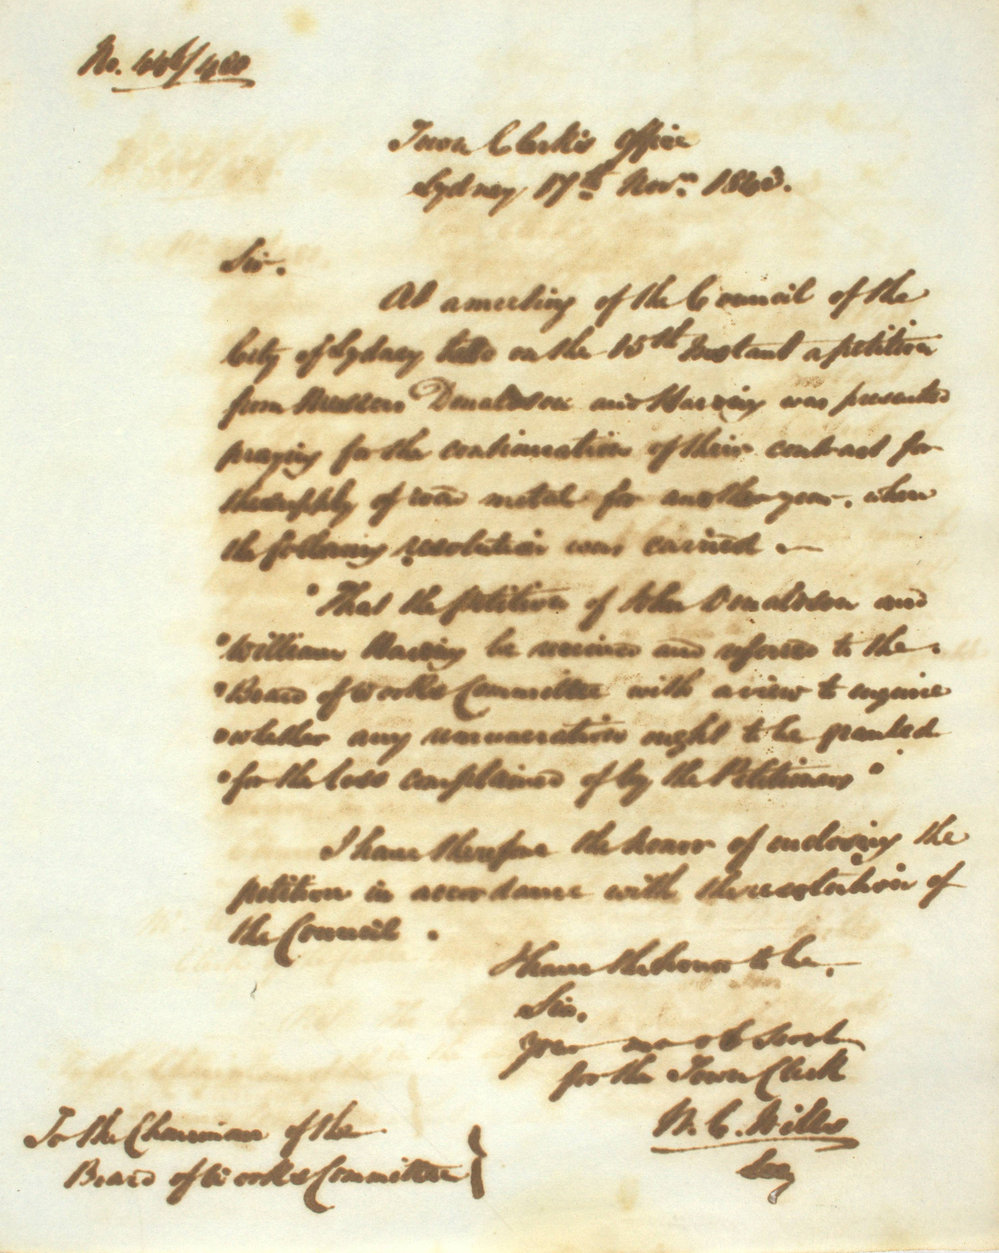 Town Clerk's Office
Sydney 17th Novr. 1843.
Sir.
At a meeting of the Council of the
City of Sydney held on the 15th Instant a petition
from Messrs Donaldson and Harvey was presented
praying for the continuation of their contract for
the supply of road metal for another year. when
the following resolution was carried. —
"That the petition of John Donaldson and
"William Harvey be received and referred to the.
"Board of Works Committee with a view to enquire
"whether any remuneration ought to be granted
"for the loss complained of by the Petitioners"
I have therefore the honor of enclosing the
petition in accordance with the resolution of
the Council.
I have the honor to be.
Sir.
Your mo obt Servt
for the Town Clerk
To the Chairman of the
W. C. Wills
Board of Works Committee